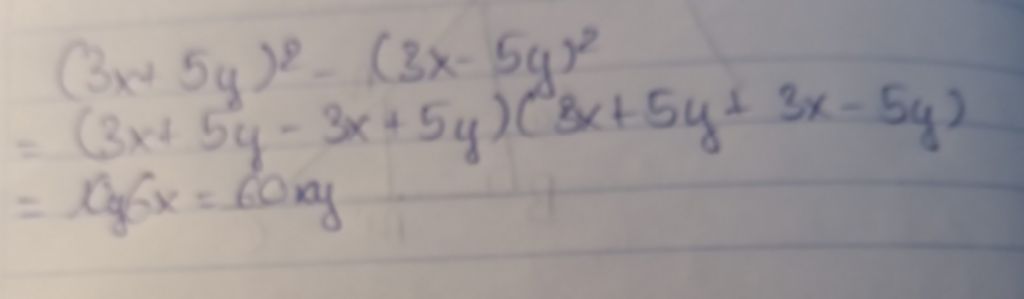 (3x+ 5y)² - (3x- 5y)²
= (3x+ 5y - 3x + 5y)(3x+5y+ 3x - 5y)
= 10y6x = 60xy